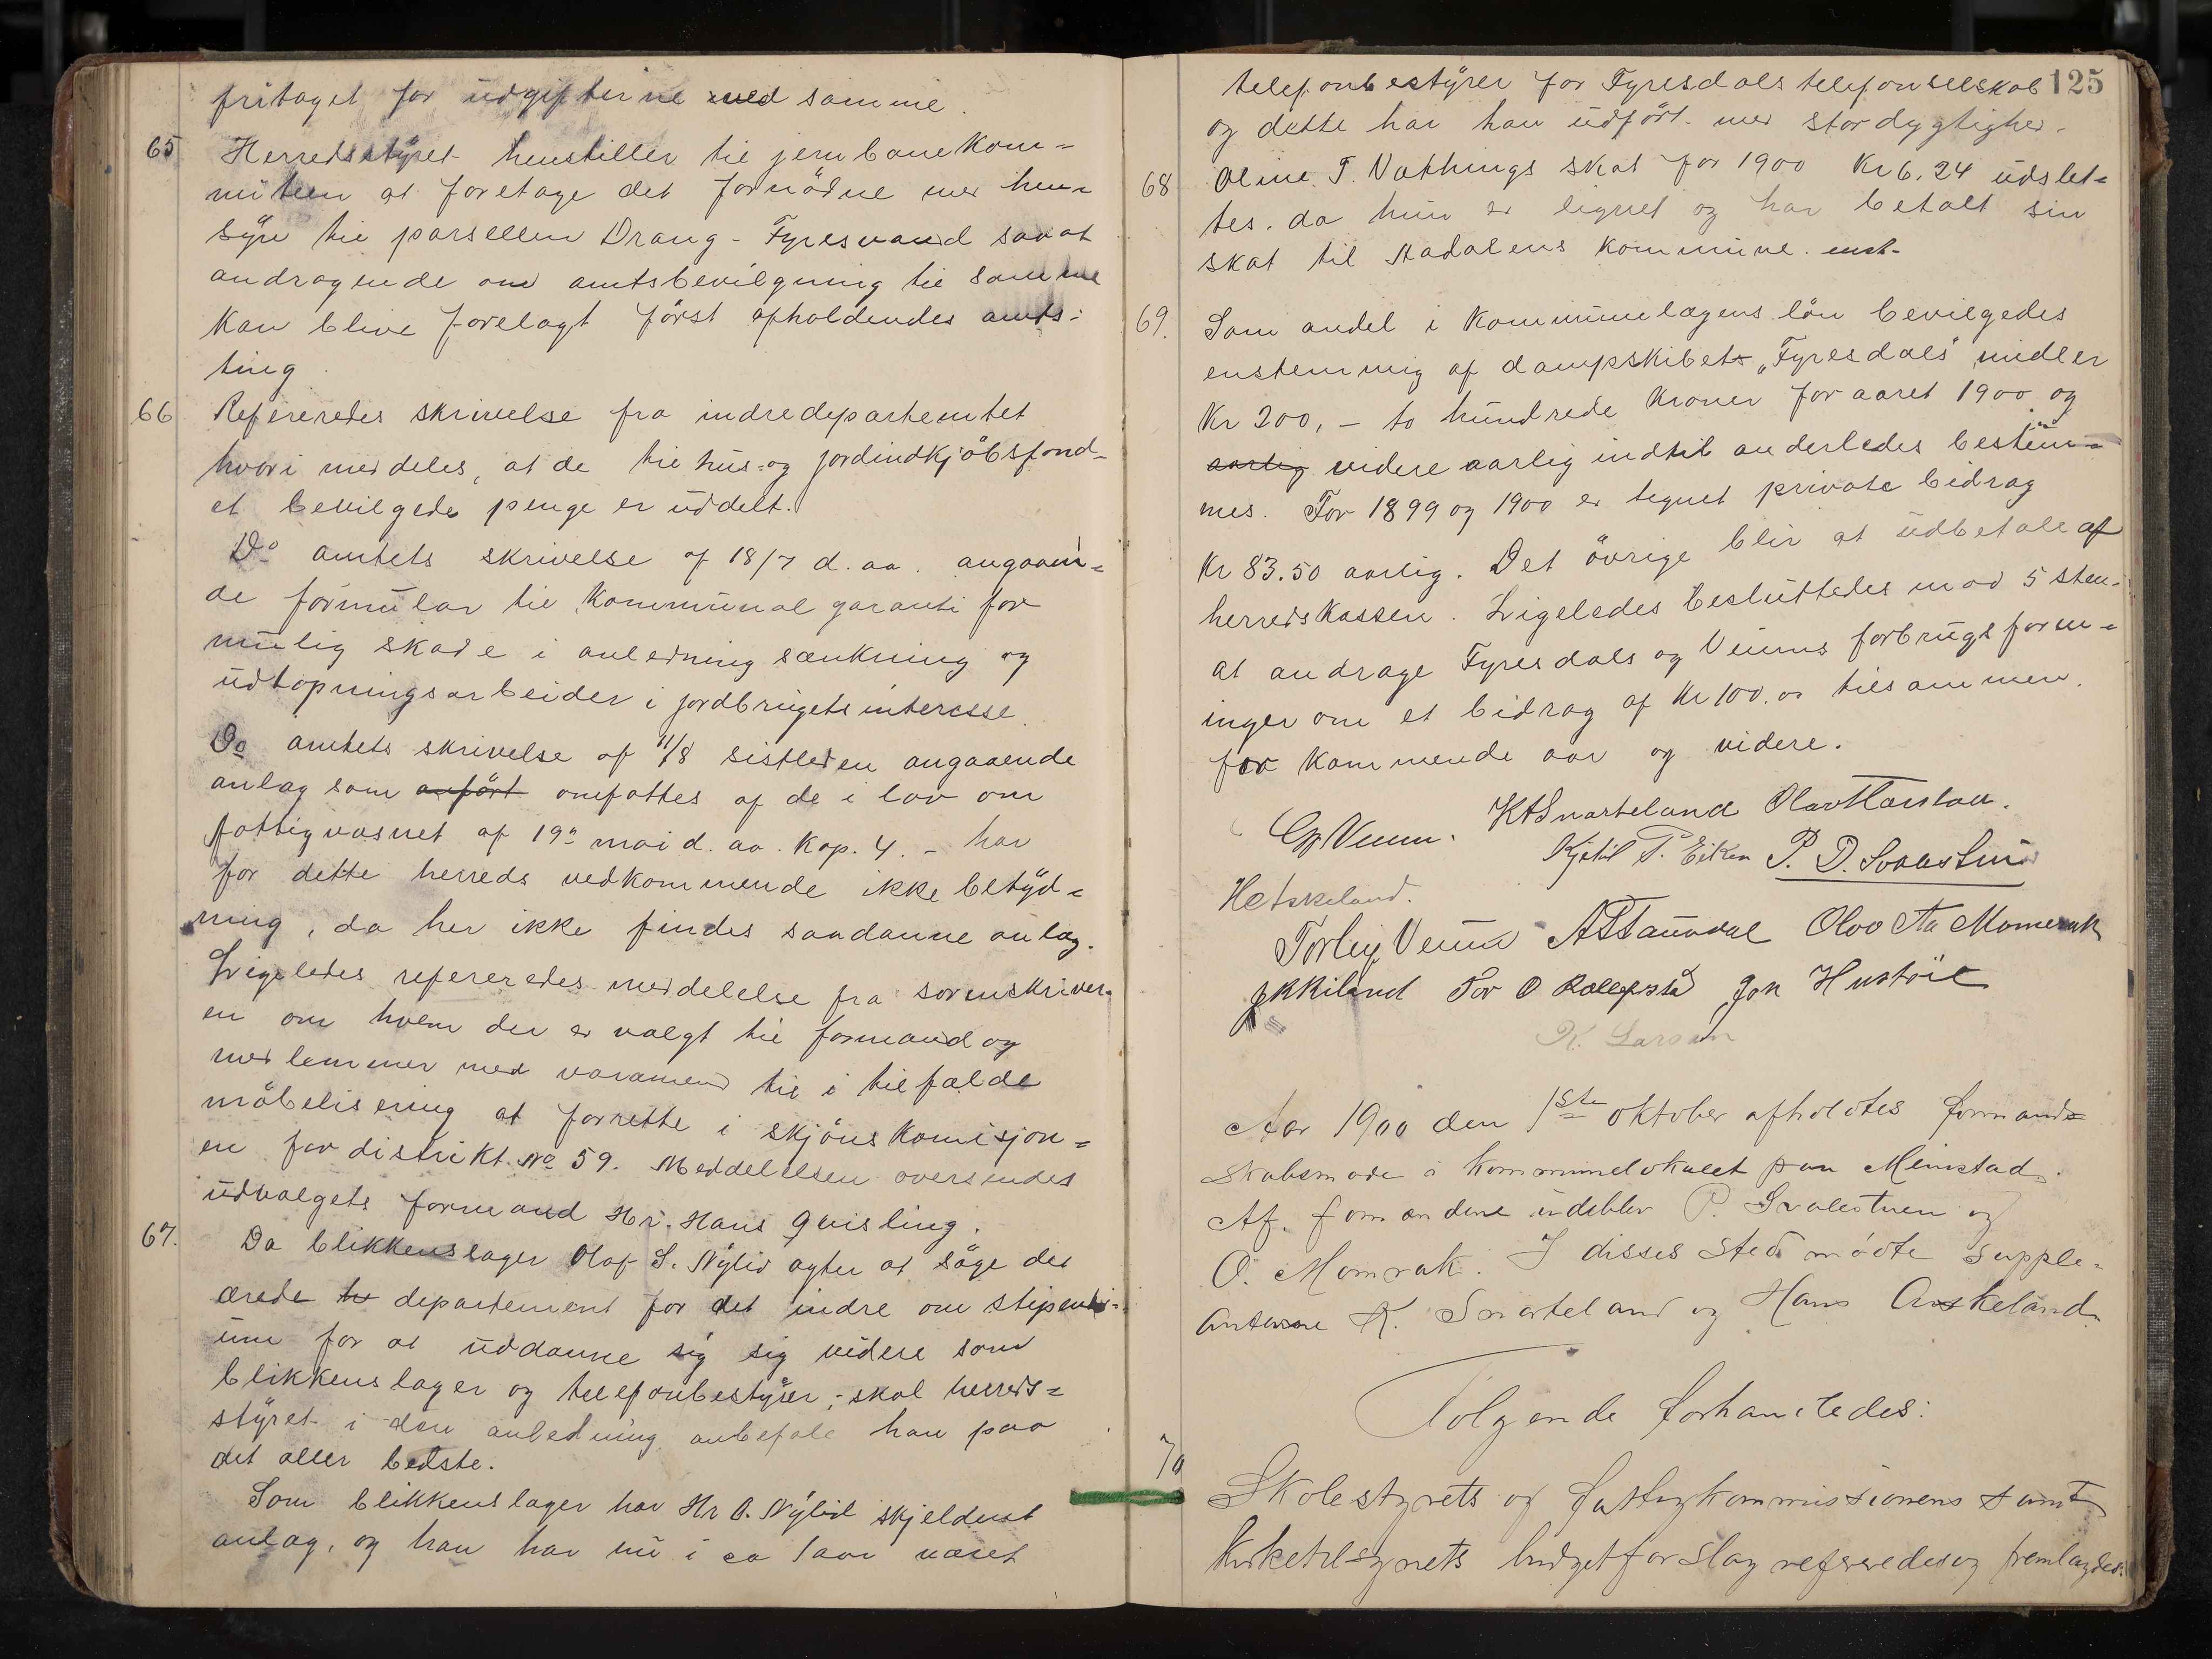 fritaget for udgifterne ved samme.
65 Herredsstyret henstiller til jernbanekom=
miteen at foretage det fornödne med hen=
syn til parsellen Drang - Fyresvand saa at
andragende om amtsbevilgning til samme
kan blive forelagt först afholdendes amts=
ting.
66 Refereredes skrivelse fra indredepartemtet
hvori meddeles, at de til hus- og jordindkjöbsfond=
et bevilgede penge er uddelt.
Do amtets skrivelse af 18/7 d. aa. angaaen=
de formular til kommunal garanti for
mulig skade i anledning sænkning og
udtapningsarbeider i jordbrugets interesse.
Do amtets skrivelse af 11/8 sistleden angaaende
anlæg som anfört omfattes af de i lov om
fattigvæsnet af 19de mai d. aa. Kap. 4. - har
for dette herreds vedkommende ikke betyd=
ning, da her ikke findes saadanne anlæg.
Ligeledes refereredes meddelelse fra sorenskriver=
en om hvem der er valgt til formand og
medlemmer med varamend til i tilfælde
möbelisering at forrette i skjönskomisjon=
en for distrikt No 59. Meddelelsen oversendes
udvalgets formand Hr. Hans Qvisling.
67. Da blikkenslager Olaf S. Nylid agter at söge det
ærede departement for det indre om stipendi=
um for at uddanne sig sig videre som
blikkenslager og telefonbestyrer; skal herreds=
styret i den anledning anbefale han paa
det aller bedste.
Som blikkenslager har Hr O. Nylid skjeldent
anlæg, og han har nu i ca 1 aar været
telefonbestyrer for Fyresdals telefonselskab 125
og dette har han udfört med stor dygtighed.
68 Oline T. Vathnings skat for 1900 Kr 6.24 udslet=
tes, da hun er lignet og har betalt sin
skat til Aadalens kommune. enst.
69. Som andel i kommunelægens lön bevilgedes
enstemmig af dampskibets "Fyresdals" midler
Kr 200,- to hundrede kroner for aaret 1900 og
aarlig videre aarlig indtil anderledes bestem=
mes. For 1899 og 1900 er tegnet private bidrag
Kr 83.50 aarlig. Det övrige blir at udbetale af
herredskassen. Ligeledes besluttedes mod 5 stem.
at andrage Fyresdals og Veums forbrugsforen=
inger om et bidrag af Kr 100.00 tilsammen
for kommende aar og videre.
G Veum. K A Snarteland Olav Haustau.
Kjetil T. Eiken P. D. Svaastui
H Askeland.
Torleiv Veum A S Taundal Olav Aa Momrak
J K Kiland Tor O Rolleifstad Jon Hustöil
K. Larsen
Aar 1900 den 1ste oktober afholdtes formand=
skabsmøde i kommunelokalet paa Meinstad.
Af formændene udeblev P. Svalestuen og
O. Momrak. I disses sted mødte supple=
anterne K. Snarteland og Hans Askeland.
Følgende forhandledes:
70 Skolestyrets og fattigkommissionens samt
Kirketilsynets budgetforslag referedes og fremlagdes.